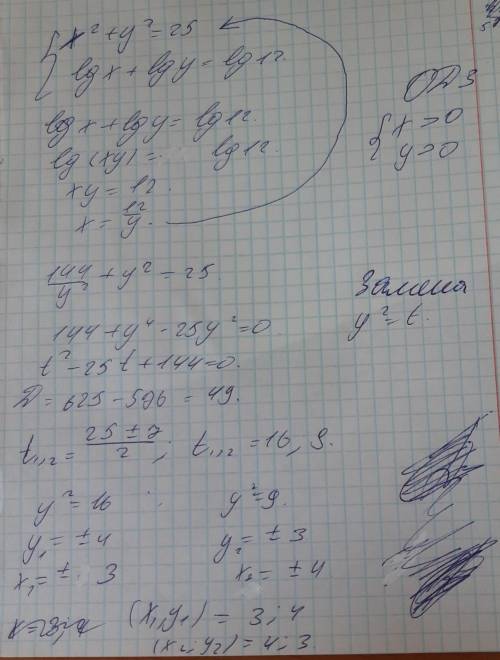 x² + y² = 25
lg x + lg y = lg 12.
ОДЗ
x > 0
y > 0
lg x + lg y = lg 12.
lg (xy) = lg 12.
xy = 12.
x = 12/y.
144/y² + y² = 25
Замена
y² = t.
144 + y⁴ - 25y² = 0
t² - 25t + 144 = 0.
D = 625 - 576 = 49.
t₁,₂ = (25 ± 7)/2 ; t₁,₂ = 16, 9.
y² = 16 y² = 9.
y₁ = ± 4 y₂ = ± 3
x₁ = ± 3 x₂ = ± 4
(x₁, y₁) = 3 ; 4
(x₂, y₂) = 4 ; 3.